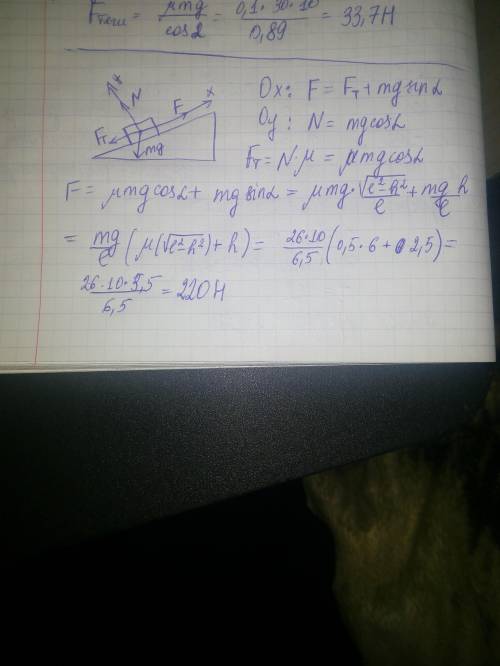 Fтеш = μmg/cosα = 0,1·30·10/0,89 = 33,7H
x N F x Fт mg
Ox: F = Fт + mg sinα
Oy: N = mg cosα
Fт = N·μ = μmg cosα
F = μmg cosα + mg sinα = μmg·√(e²-h²)/e + mg/e h
= mg/e (μ(√e²-h²) + h) = 26·10/6,5 (0,5·6 + 2,5) =
26·10·5,5/6,5 = 220H